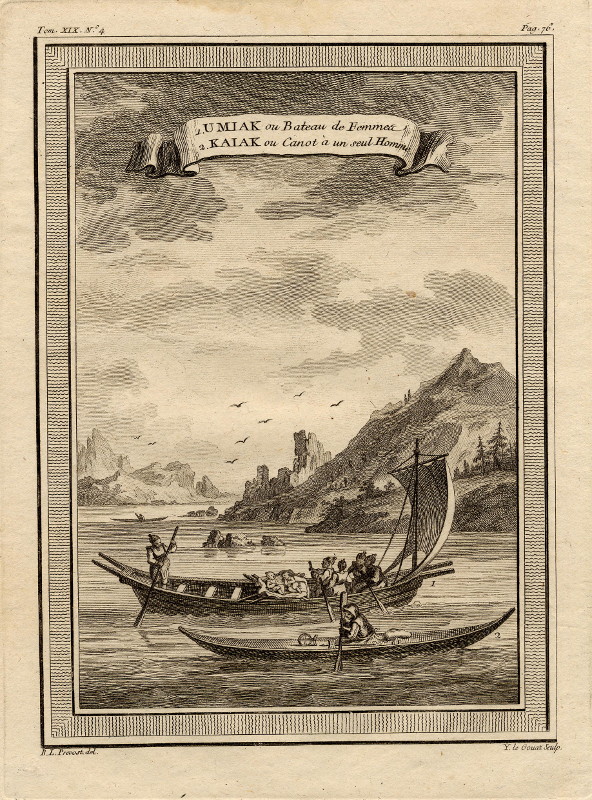 Tom. XIX. N.º 4
Pag. 76.
1. UMIAK ou Bateau de Femmes
2. KAIAK ou Canot à un seul Homme
2
B. L. Prevost del.
Y. le Gouat Sculp.